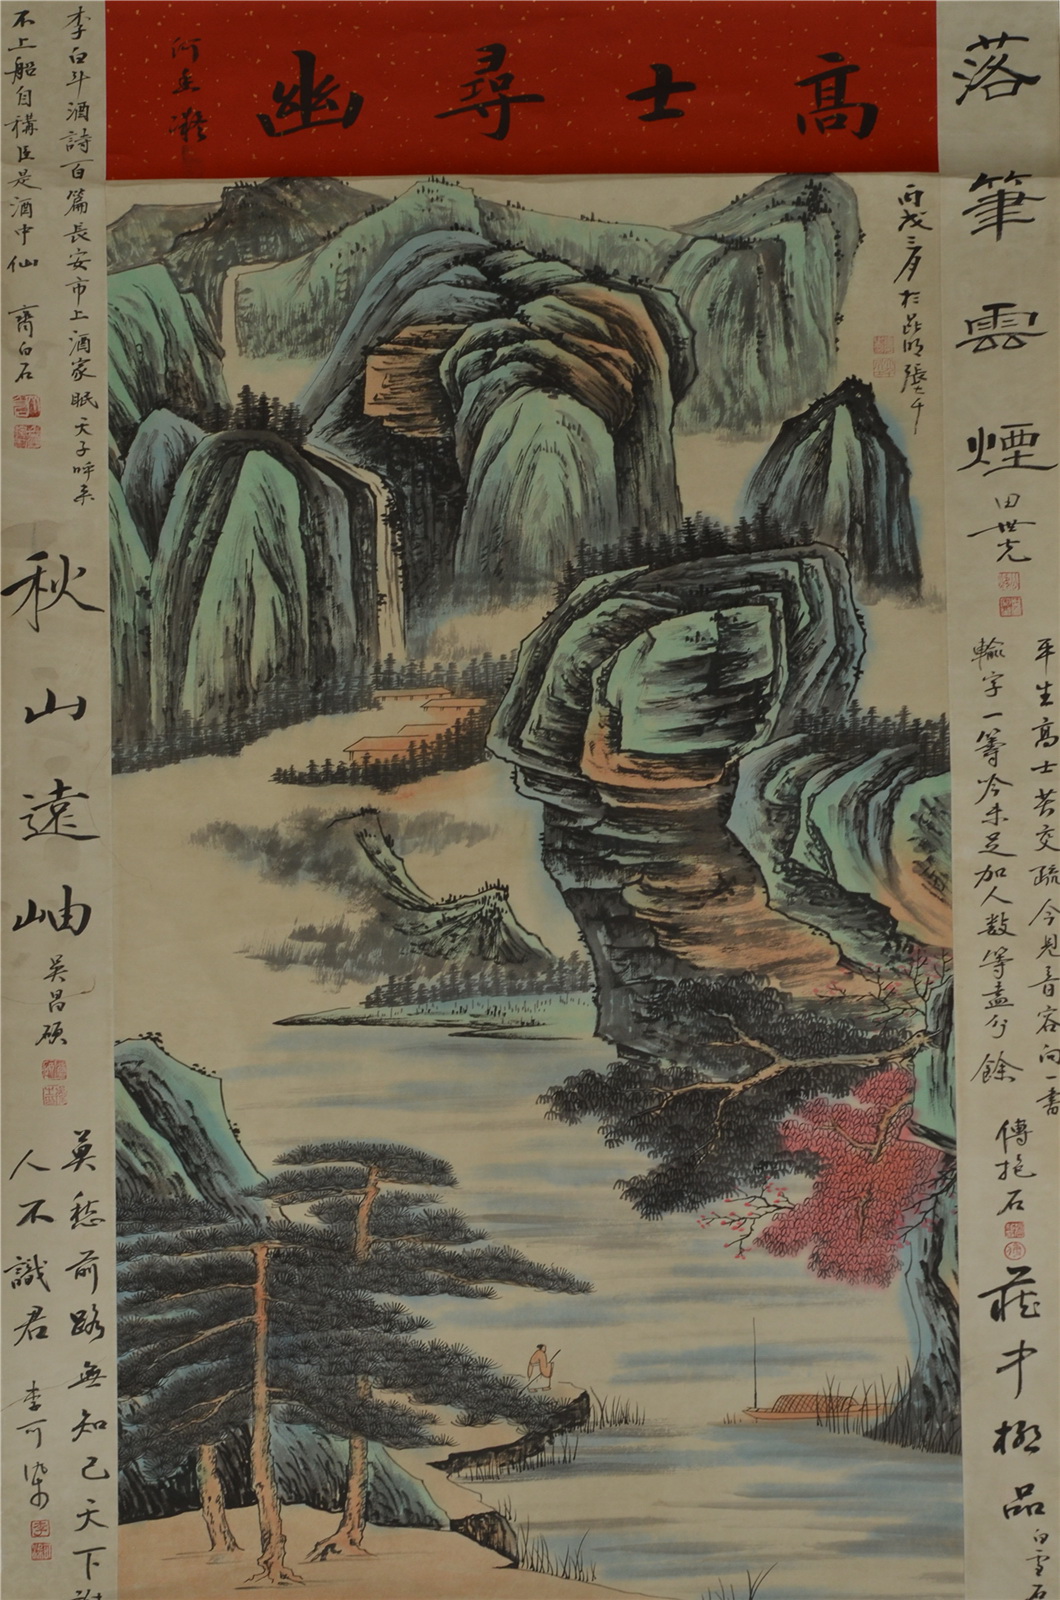 高士尋幽
何香凝
丙戌三月於昆明張大千
落筆雲煙
田世光
平生高士苦交疏今見音容向一書
輸字一籌吟未足加人數等盡分餘
傅抱石
藏中極品
白雪石
李白斗酒詩百篇長安市上酒家眠天子呼來
不上船自稱臣是酒中仙
齊白石
秋山遠岫
吳昌碩
莫愁前路無知己天下
人不識君
李可染